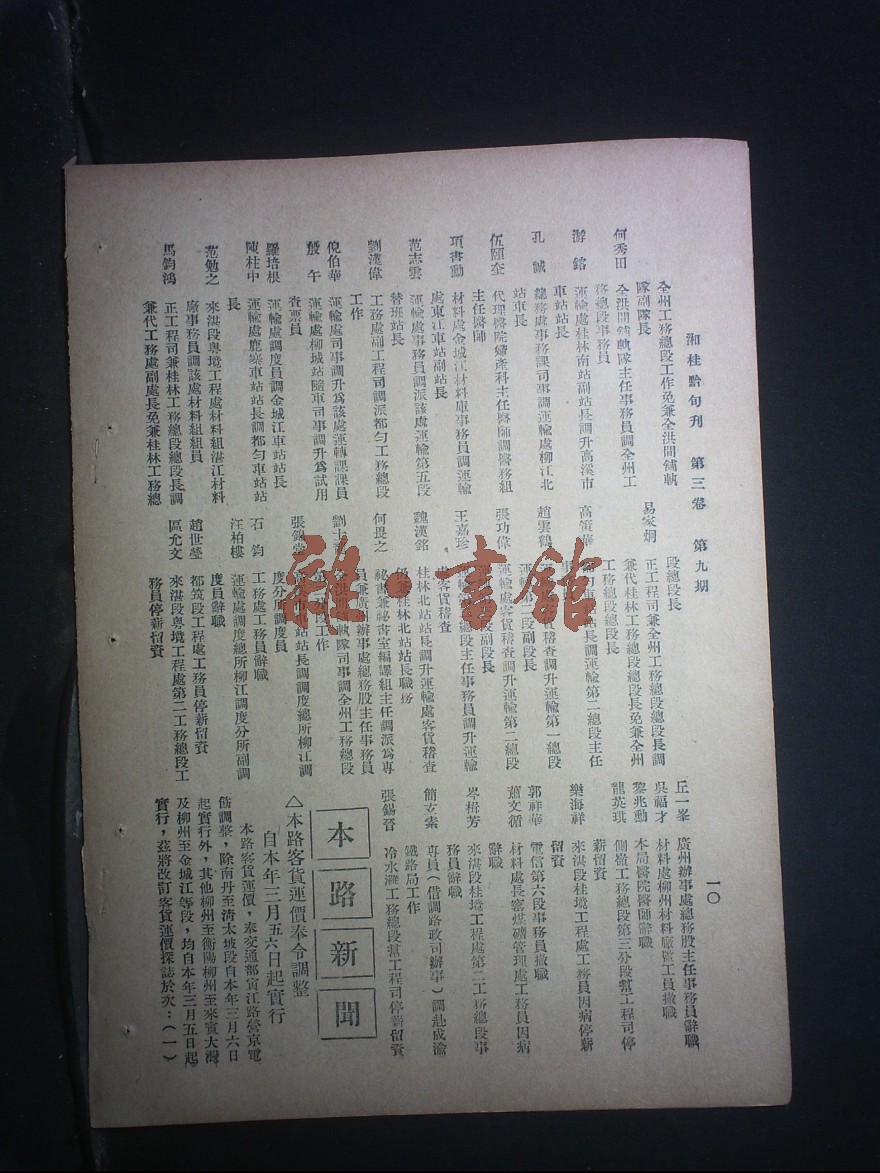 湘桂黔旬刊 第三卷 第九期 一〇
全州工務總段工作免兼全洪間舖軌
隊副隊長
何秀田 全洪間舖軌隊主任事務員調全州工
務總段事務員
游銘 運輸處桂林南站副站長調升高溪市
車站站長
孔誠 總務處事務課司事調運輸處柳江北
站車長
伍頤奎 代理醫院婦產科主任醫師調醫務組
主任醫師
項書勳 材料處金城江材料庫事務員調運輸
處東江車站副站長
范志雲 運輸處事務員調派該處運輸第五段
替班站長
劉漢偉 工務處副工程司調派都勻工務總段
工作
倪伯華 運輸處司事調升為該處運轉課課員
殷午 運輸處柳城站隨車司事調升為試用
查票員
羅培根 運輸處調度員調金城江車站站長
陳柱中 運輸處鹿寨車站站長調都勻車站站
長
范勉之 來湛段粵境工程處材料組湛江材料
廠事務員調該處材料組組員
馬鈞鴻 正工程司兼桂林工務總段總段長調
兼代工務處副處長免兼桂林工務總
段總段長
易家炯 正工程司兼全州工務總段總段長調
兼代桂林工務總段總段長免兼全州
工務總段總段長
高策華 勻車站站長調運輸第二總段主任
趙雲鶴 稽查調升運輸第一總段
二段副段長
張功偉 運輸處客貨稽查調升運輸第二總段
副段長
王嘉珍 總段主任事務員調升運輸
處客貨稽查
魏漢銘 桂林北站站長調升運輸處客貨稽查
仍兼桂林北站站長職務
何畏之 祕書兼祕書室編譯組主任調派為專
員兼廣州辦事處總務股主任事務員
劉士 全洪間舖軌隊司事調全州工務總段
分段工作
張錦堂 站站長調調度總所柳江調
度分所調度員
石鈞 工務處工務員辭職
汪柏樓 運輸處調度總所柳江調度分所副調
度員辭職
趙世瑩 都筑段工程處工務員停薪留資
區允文 來湛段粵境工程處第二工務總段工
務員停薪留資
丘一峯 廣州辦事處總務股主任事務員辭職
吳福才 材料處柳州材料廠監工員撤職
黎兆勳 本局醫院醫師辭職
龍英琪 側嶺工務總段第三分段幫工程司停
薪留資
樂海祥 來湛段桂境工程處工務員因病停薪
留資
郭祥華 電信第六段事務員撤職
蕭文循 材料處長窰煤礦管理處工務員因病
辭職
岑楫芳 來湛段桂境工程處第二工務總段事
務員辭職
簡玄素 專員(借調路政司辦事)調赴成渝
鐵路局工作
張錫晉 冷水灘工務總段幫工程司停薪留資
本路新聞
△本路客貨運價奉令調整
自本年三月五六日起實行
本路客貨運價,奉交通部寅江路營京電
飭調整,除南丹至清太坡段自本年三月六日
起實行外,其他柳州至衡陽柳州至來賓大灣
及柳州至金城江等段,均自本年三月五日起
實行,茲將改訂客貨運價探誌於次:(一)
雜·書館